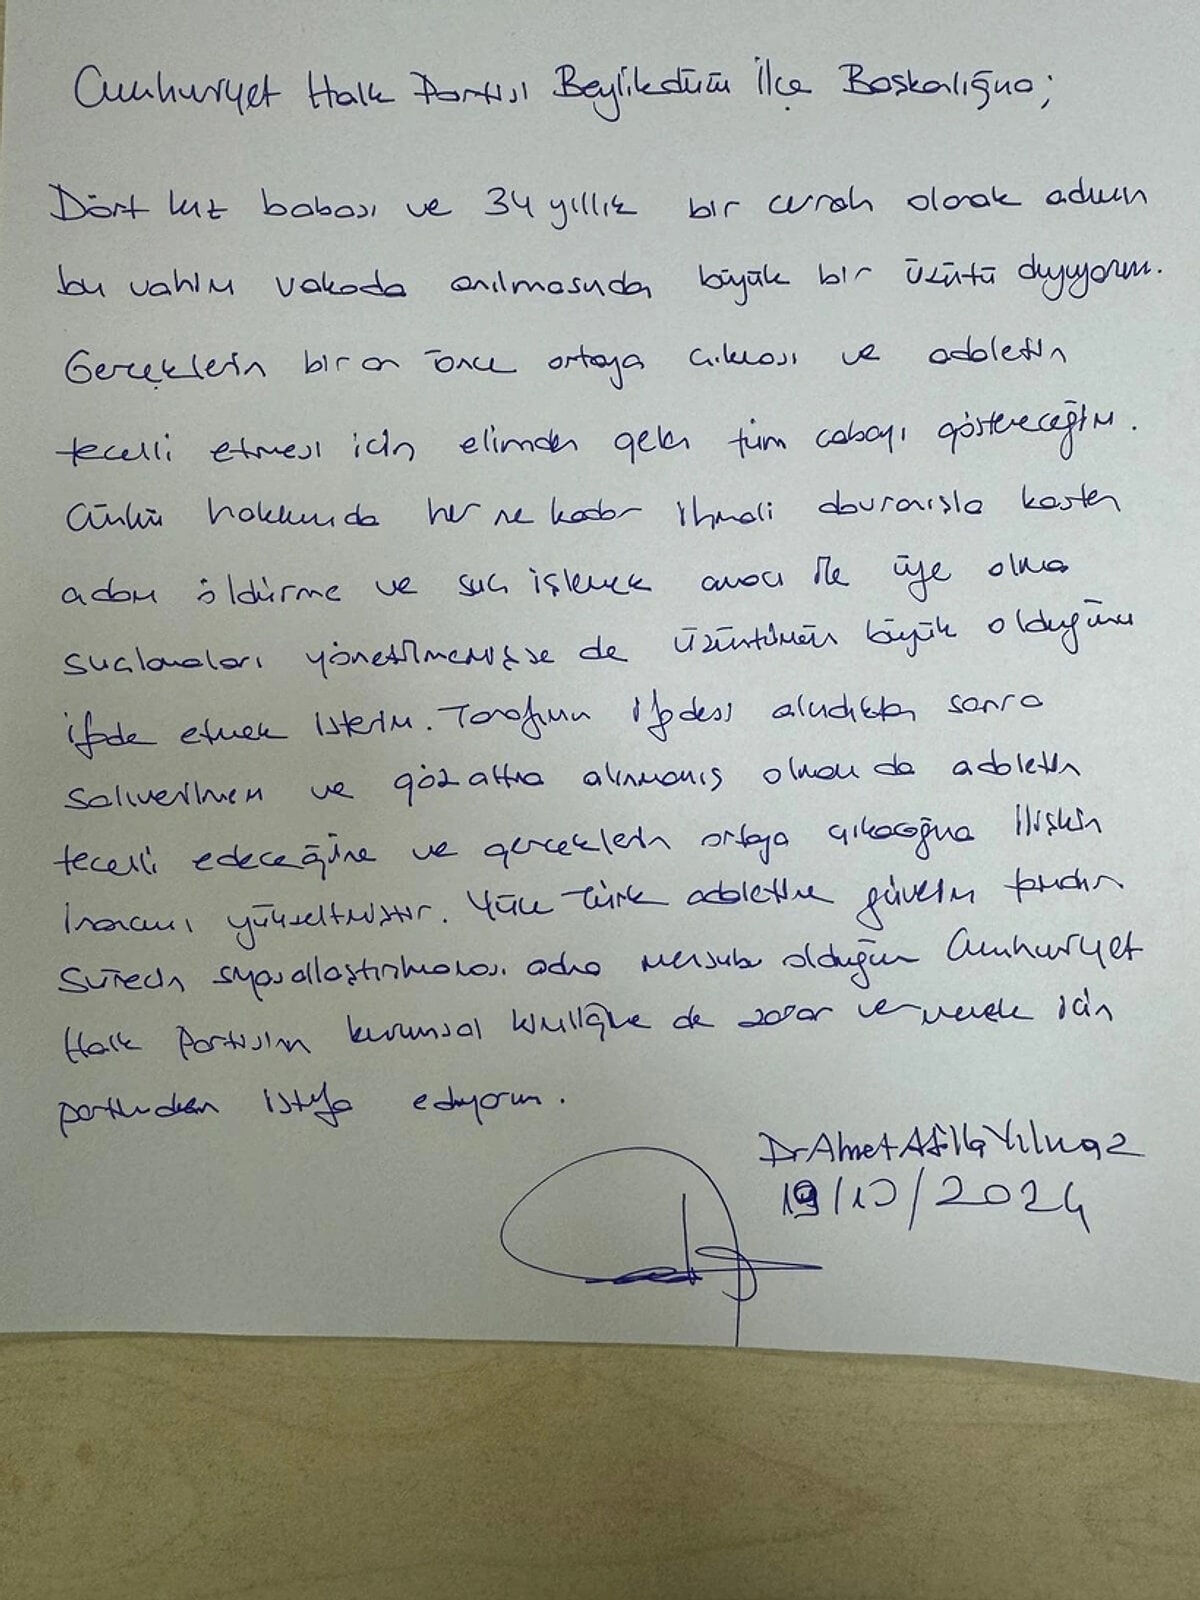 Cumhuriyet Halk Partisi Beylikdüzü İlçe Başkanlığına;
Dört kız babası ve 34 yıllık bir cerrah olarak adımın
bu vahim vakada anılmasından büyük bir üzüntü duyuyorum.
Gerçeklerin bir an önce ortaya çıkması ve adaletin
tecelli etmesi için elimden gelen tüm çabayı göstereceğim.
Çünkü hakkımda her ne kadar ihmali davranışla kasten
adam öldürme ve suç işlemek amacı ile üye olma
suçlamaları yöneltilmemişse de üzüntümün büyük olduğunu
ifade etmek isterim. Tarafımın ifadesi alındıktan sonra
salıverilmem ve göz altına alınmamış olmam da adaletin
tecelli edeceğine ve gerçeklerin ortaya çıkacağına ilişkin
inancımı yükseltmiştir. Yüce Türk adaletine güvenim tamdır.
Sürecin siyasallaştırılmaması adına mensubu olduğum Cumhuriyet
Halk Partisinin kurumsal kimliğine de zarar vermemek için
partimden istifa ediyorum.
Dr Ahmet Atilla Yılmaz
19/10/2024